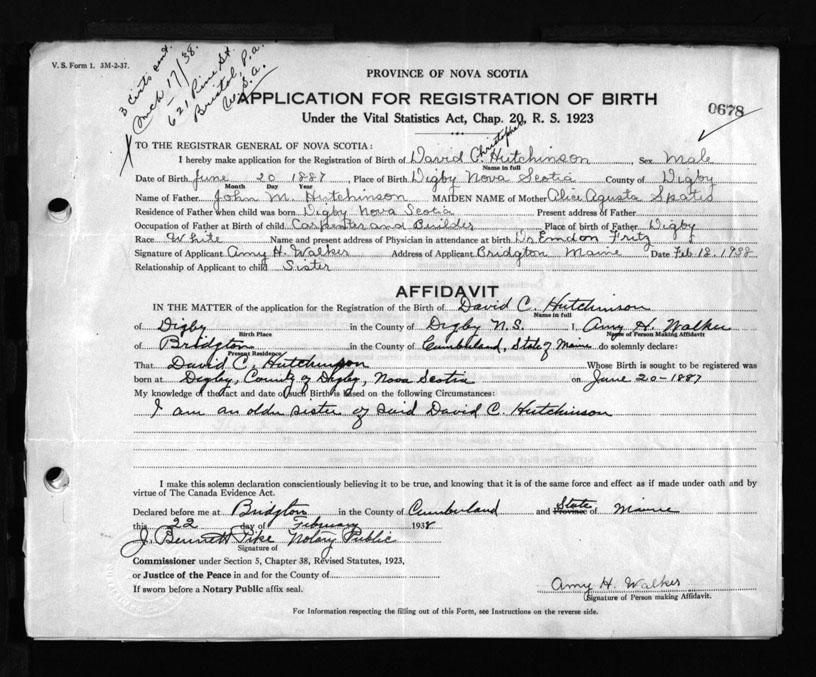 V. S. Form 1. 3M-2-37.
3 certs ent.
March 17/38.
621 Pine St.
Bristol, P.a.
U.S.a.
PROVINCE OF NOVA SCOTIA
APPLICATION FOR REGISTRATION OF BIRTH
0678
Under the Vital Statistics Act, Chap. 20, R. S. 1923
TO THE REGISTRAR GENERAL OF NOVA SCOTIA:
Christopher
I hereby make application for the Registration of Birth of David C. Hutchinson, Sex Male
Name in full
Date of Birth June 20 1887, Place of Birth Digby Nova Scotia County of Digby
Month Day Year
Name of Father John M. Hutchinson MAIDEN NAME of Mother Alice Agusta
Residence of Father when child was born Digby Nova Scotia Present address of Father
Occupation of Father at Birth of child Carpenter and Builder Place of birth of Father Digby
Race White Name and present address of Physician in attendance at birth Dr Fritz
Signature of Applicant Amy H. Walker Address of Applicant Bridgton Maine Date Feb 18, 1938
Relationship of Applicant to child Sister
AFFIDAVIT
IN THE MATTER of the application for the Registration of the Birth of David C. Hutchinson
Name in full
of Digby in the County of Digby N.S. I, Amy H. Walker
Birth Place Name of Person Making Affidavit
of Bridgton in the County of Cumberland, State of Maine do solemnly declare:
Present Residence
That David C. Hutchinson Whose Birth is sought to be registered was
born at Digby, County of Digby, Nova Scotia on June 20-1887
My knowledge of the fact and date of such Birth is based on the following Circumstances:
I am an older sister of said David C. Hutchinson
I make this solemn declaration conscientiously believing it to be true, and knowing that it is of the same force and effect as if made under oath and by
virtue of The Canada Evidence Act.
Declared before me at Bridgton in the County of Cumberland and State Province of Maine
this 22 day of February 1938
J. Bennett Pike Notary Public
Signature of
Commissioner under Section 5, Chapter 38, Revised Statutes, 1923,
or Justice of the Peace in and for the County of
Amy H. Walker
If sworn before a Notary Public affix seal.
Signature of Person making Affidavit.
For Information respecting the filling out of this Form, see Instructions on the reverse side.